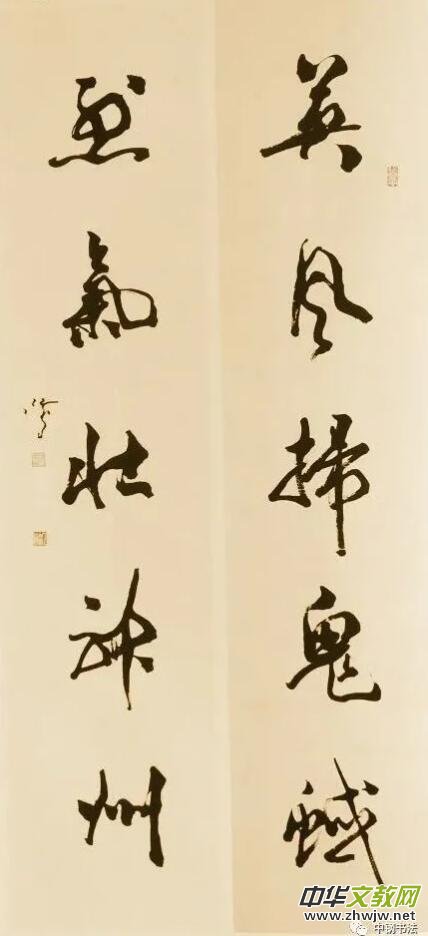 英风掃鬼蜮
烈氣壮神州
中华文教网
www.zhwjw.net
中钢书法